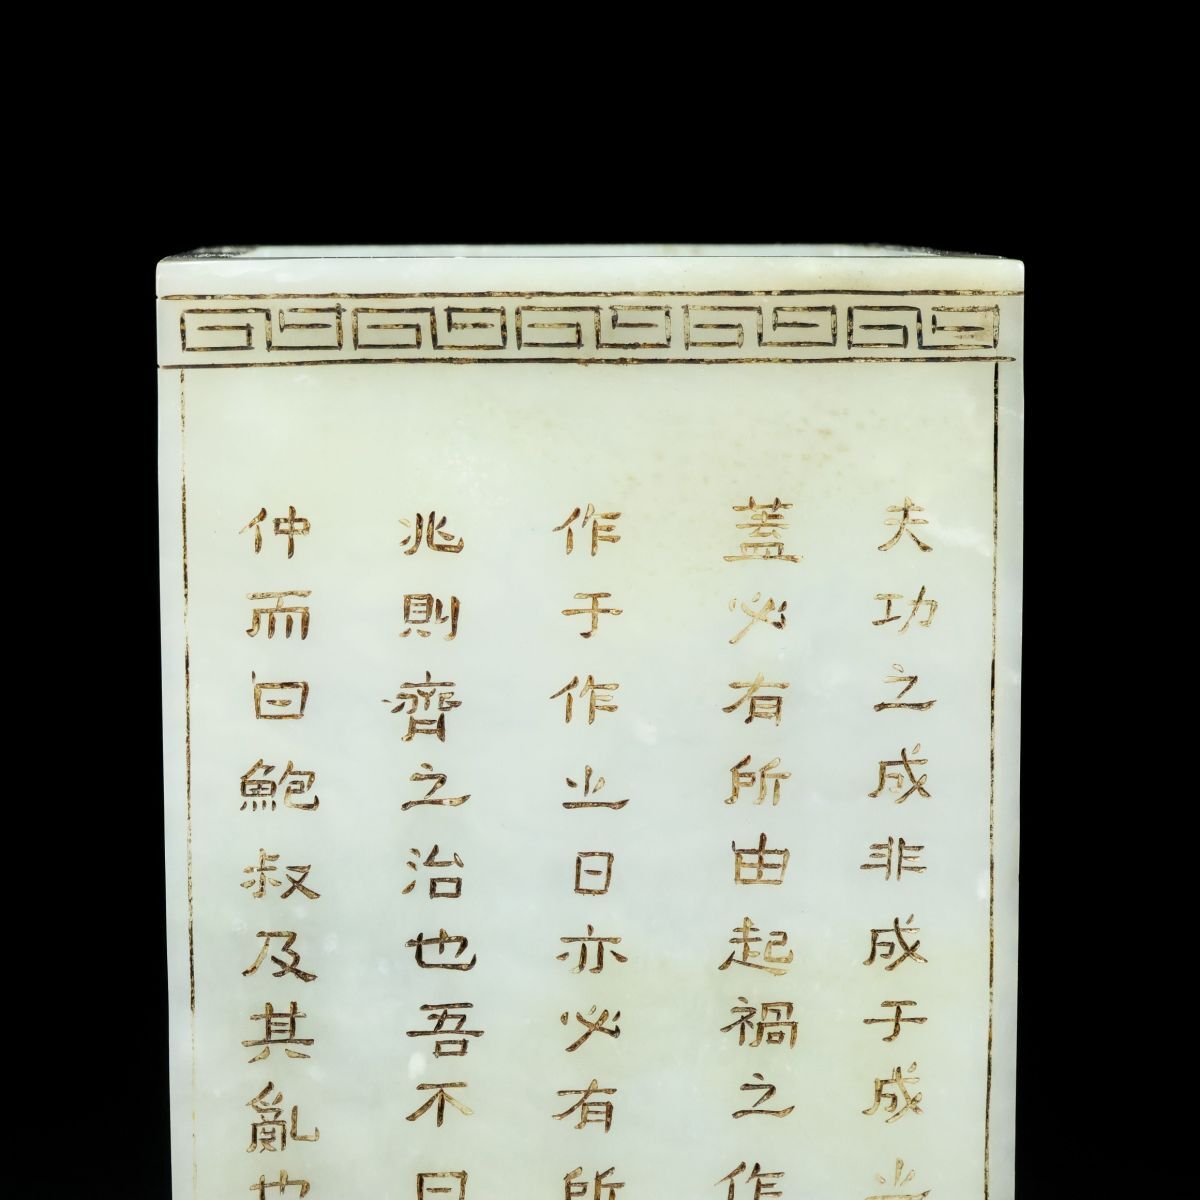 夫功之成非成于成之
蓋必有所由起禍之作
作于作之日亦必有所
兆則齊之治也吾不曰
仲而曰鮑叔及其亂也